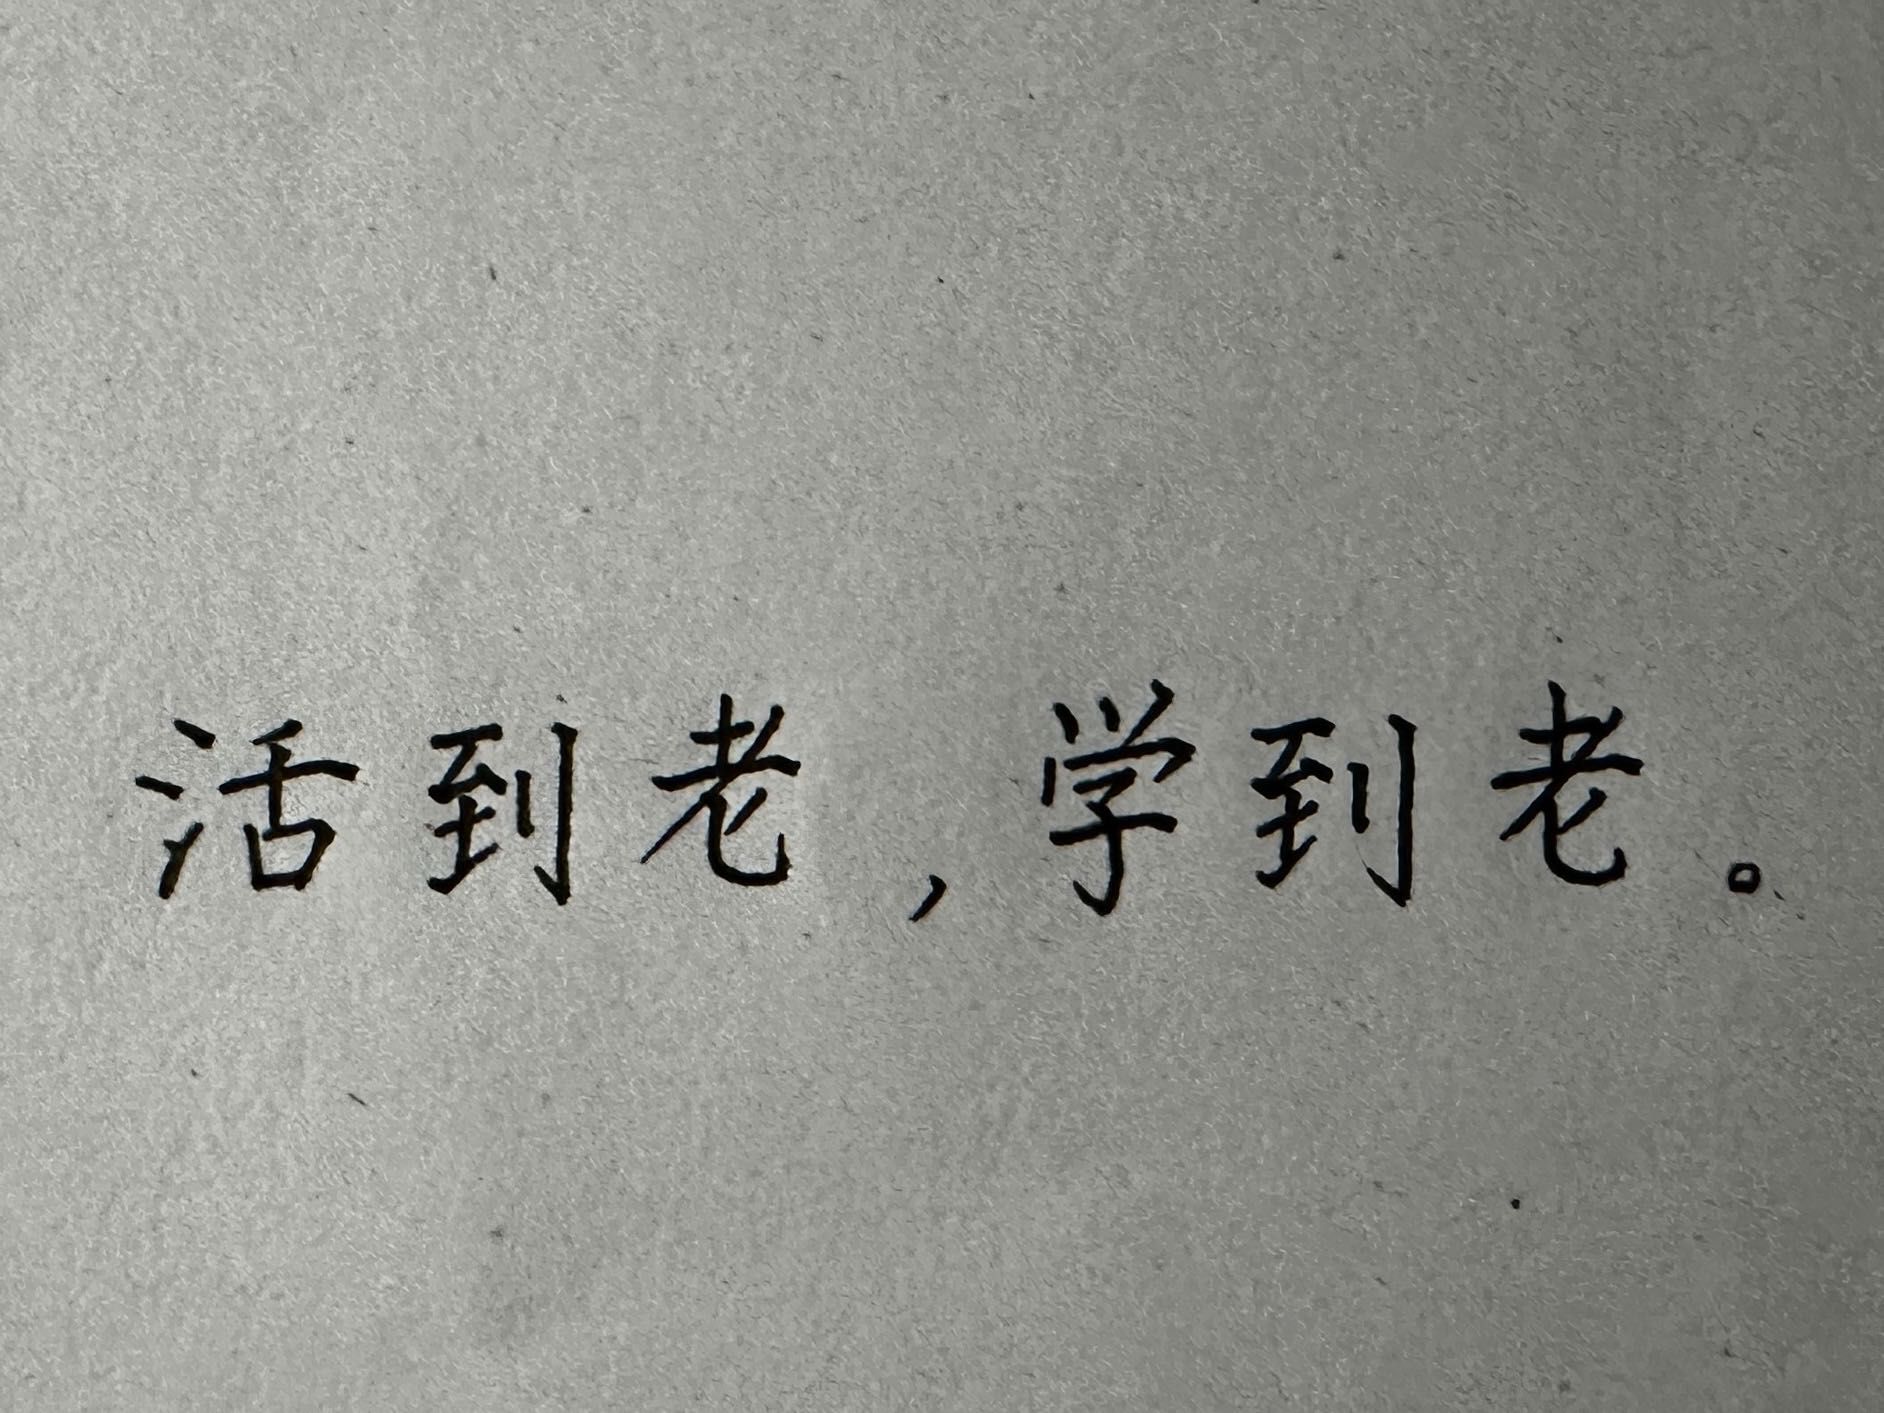 活到老，学到老。